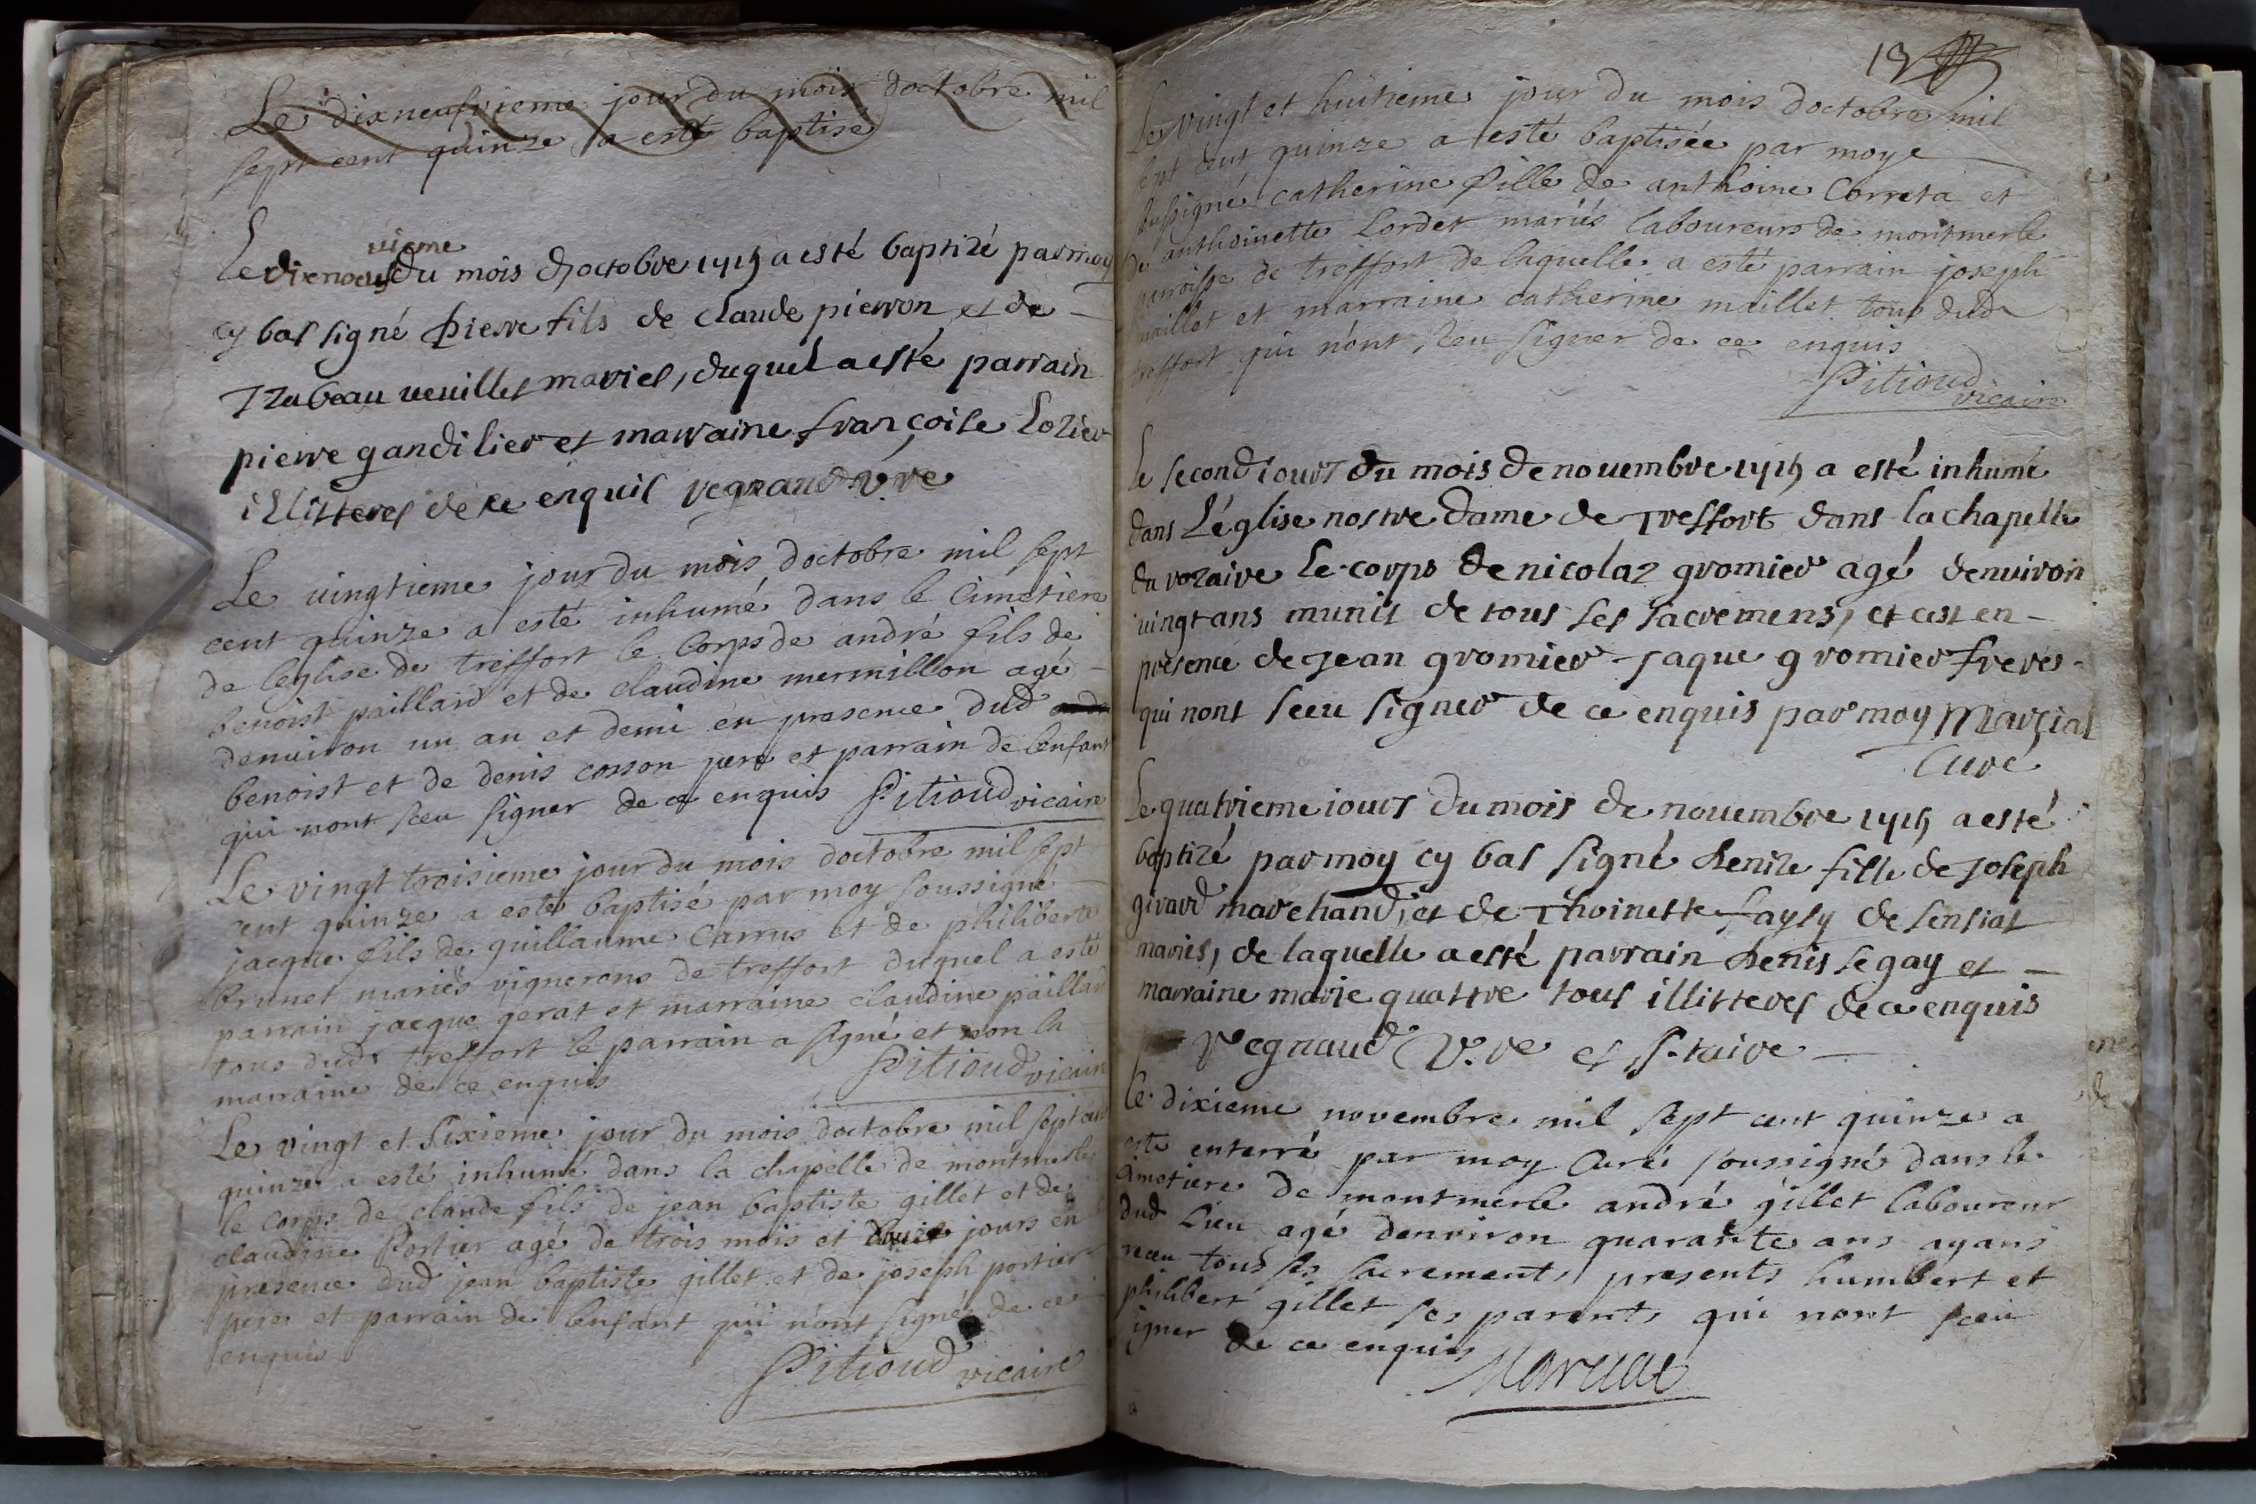 Le dixneufvieme jour du mois doctobre mil
sept cent quinze a esté baptisé
vieme
Le dixneuf du mois d'octobre 1715 a esté baptizé par moy
cy bas signé Pierre fils de claude pierron et de
Izabeau ueuillet mariés, duquel a esté parrain
pierre gandilier et marraine françoise Lozier
illitteres de ce enquis regnaud v.re
Le uingtieme jour du mois doctobre mil sept
cent quinze a esté inhumé dans le Cimetiere
de leglise de treffort le Corps de andré fils de
benoist paillard et de claudine mermillon agé
denuiron un an et demi en presence dud
benoist et de denis cosson pere et parrain de lenfant
qui nont sceu signer de ce enquis Pitioud vicaire
Le vingt troisieme jour du mois doctobre mil sept
cent quinze a esté baptisé par moy soussigné
jacque fils de guillaume Carrus et de philiberte
brunet mariés vignerons de treffort duquel a esté
parrain jacque gerat et marraine claudine paillard
tous dud treffort le parrain a signé et non la
marraine de ce enquis Pitioud vicaire
Le vingt et sixieme jour du mois doctobre mil sept cent
quinze a esté inhumé dans la chapelle de montmerle
le corps de claude fils de jean baptiste gillet et de
claudine Portier agé de trois mois et huit jours en
presence dud jean baptiste gillet et de joseph portier
pere et parrain de lenfant qui nont signés de ce
enquis
Pitioud vicaire
13
Le vingt et huitieme jour du mois doctobre mil
sept cent quinze a esté baptisée par moy
soussigné catherine fille de anthoine Correta et
de anthoinette Lordet mariés laboureurs de montmerle
parroisse de treffort de laquelle a esté parrain joseph
maillet et marraine catherine maillet tous dud
treffort qui n'ont sceu signer de ce enquis
Pitioud vicaire
Le second iours du mois de nouembre 1715 a esté inhumé
dans L'église nostre Dame de Treffort dans la chapelle
du rozaire Le corps de nicolaz gromier agé denuiron
uingt ans munis de tous ses sacremens, et cest en
presence de Jean gromier jaque gromier freres
qui nont sceu signer de ce enquis par moy Marcial
Curé
Le quatrieme iours du mois de nouembre 1715 a esté
baptizé par moy cy bas signé Denize fille de Joseph
girard marchand, et de Thoinette faysy de Senssiat
mariés, de laquelle a esté parrain Denis Legay et
marraine marie quattre tous illitteres de ce enquis
regnaud v.re et s.taire
Le dixieme novembre mil sept cent quinze a
este enterré par moy Curé soussigné dans le
cimetiere de montmerle andré gillet laboureur
dud Lieu agé denviron quarante ans ayans
receu tous ses sacrements presents humbert et
philibert gillet ses parents qui nont sceu
signer de ce enquis